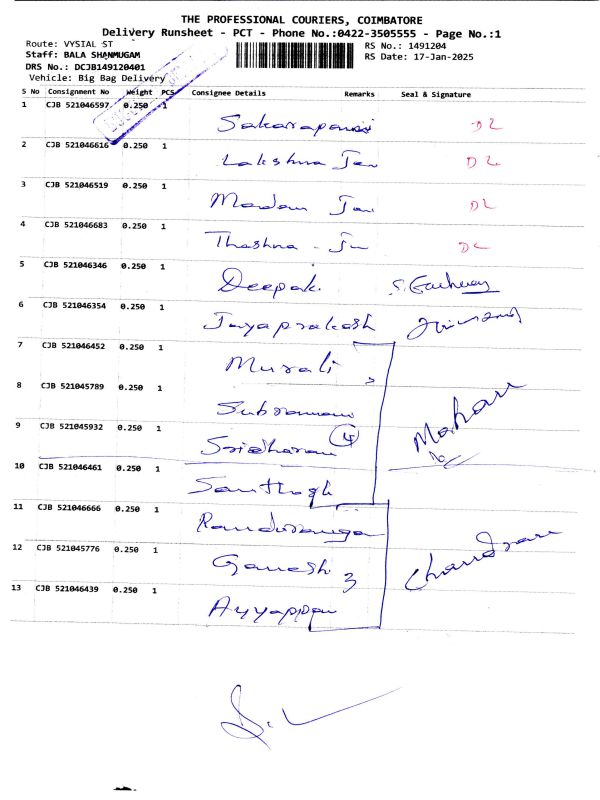 THE PROFESSIONAL COURIERS, COIMBATORE
Delivery Runsheet - PCT - Phone No.:0422-3505555 - Page No.:1
Route: VYSIAL ST
RS No.: 1491204
Staff: BALA SHANMUGAM
RS Date: 17-Jan-2025
DRS No.: DCJB149120401
Vehicle: Big Bag Delivery
S No Consignment No Weight PCS Consignee Details Remarks Seal & Signature
1 CJB 521046597 0.250 1
DL
2 CJB 521046616 0.250 1
Lakshma Jan DL
3 CJB 521046519 0.250 1
Madam Jan DL
4 CJB 521046683 0.250 1
DL
5 CJB 521046346 0.250 1
Deepak.
6 CJB 521046354 0.250 1
Jayaprakash
7 CJB 521046452 0.250 1
Murali
8 CJB 521045789 0.250 1
Subramani
Mohan
9 CJB 521045932 0.250 1
Sridharan 4
10 CJB 521046461 0.250 1
Santhosh
11 CJB 521046666 0.250 1
Pandurangan
12 CJB 521045776 0.250 1
Ganesh 3
Chandran
13 CJB 521046439 0.250 1
Ayyappan